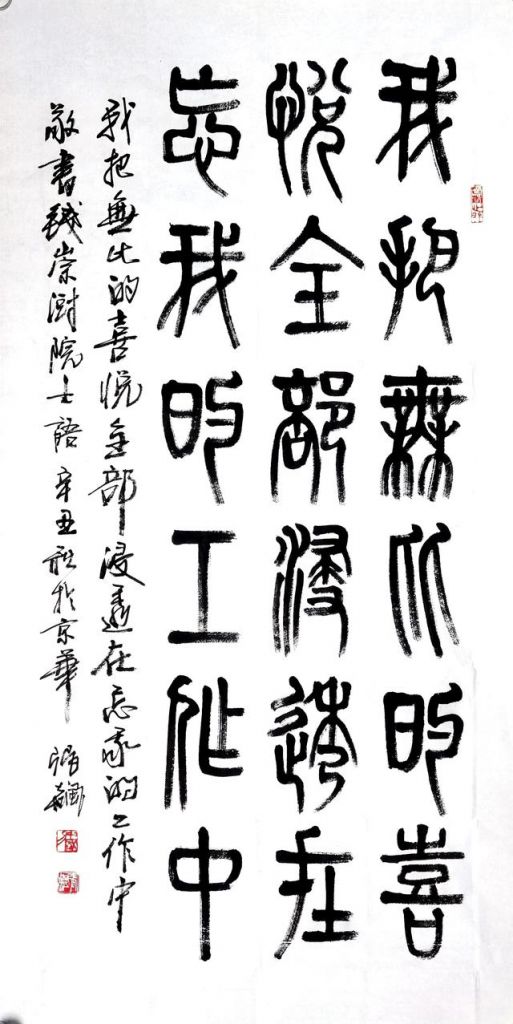 我把無比的喜
悅全部浸透在
忘我的工作中
我把無比的喜悅全部浸透在忘我的工作中
敬書錢崇澍院士語 辛丑秋於京華 張飆